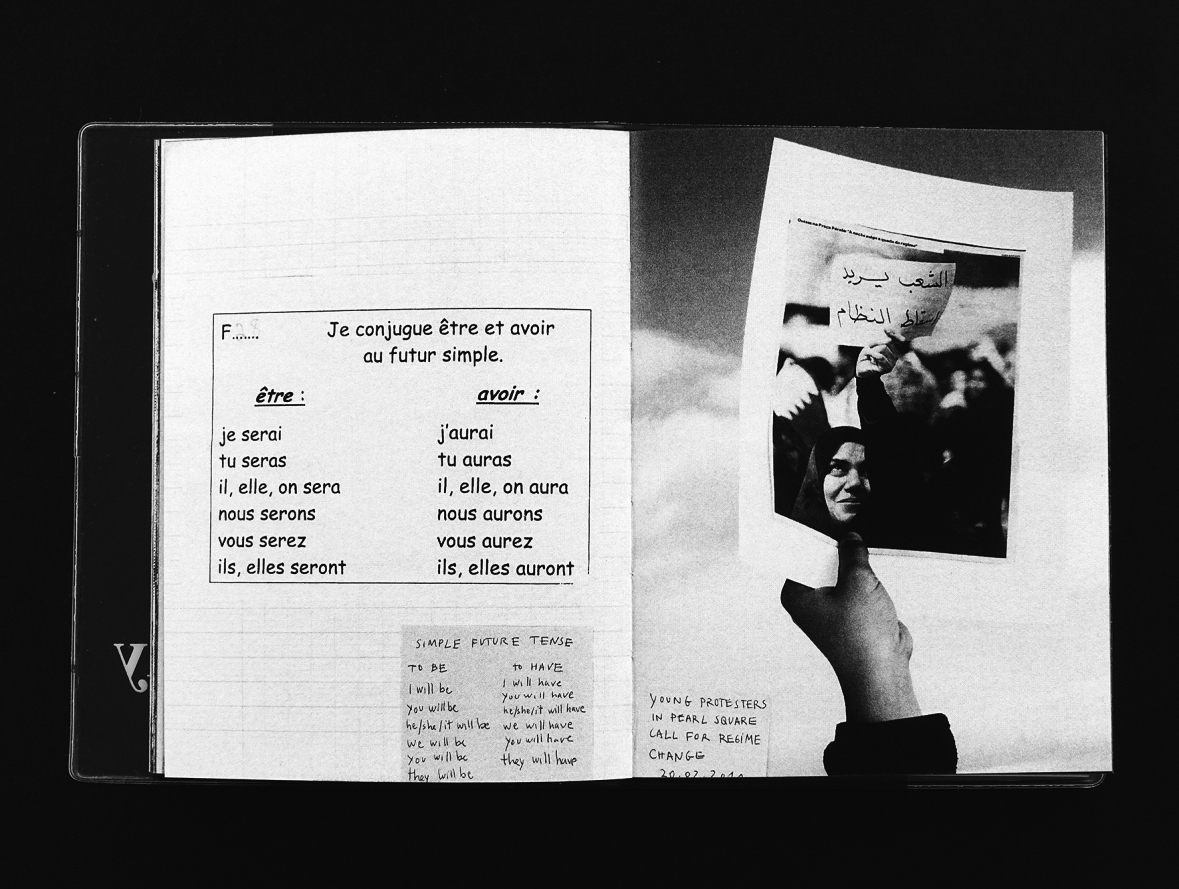 F.28....
Je conjugue être et avoir
au futur simple.
être :
je serai
tu seras
il, elle, on sera
nous serons
vous serez
ils, elles seront
avoir :
j'aurai
tu auras
il, elle, on aura
nous aurons
vous aurez
ils, elles auront
SIMPLE FUTURE TENSE
TO BE
I will be
you will be
he/she/it will be
we will be
you will be
they will be
to HAVE
I will have
you will have
he/she/it will have
we will have
you will have
they will have
الشعب يريد
إسقاط النظام
YOUNG PROTESTERS
IN PEARL SQUARE
CALL FOR REGIME
CHANGE